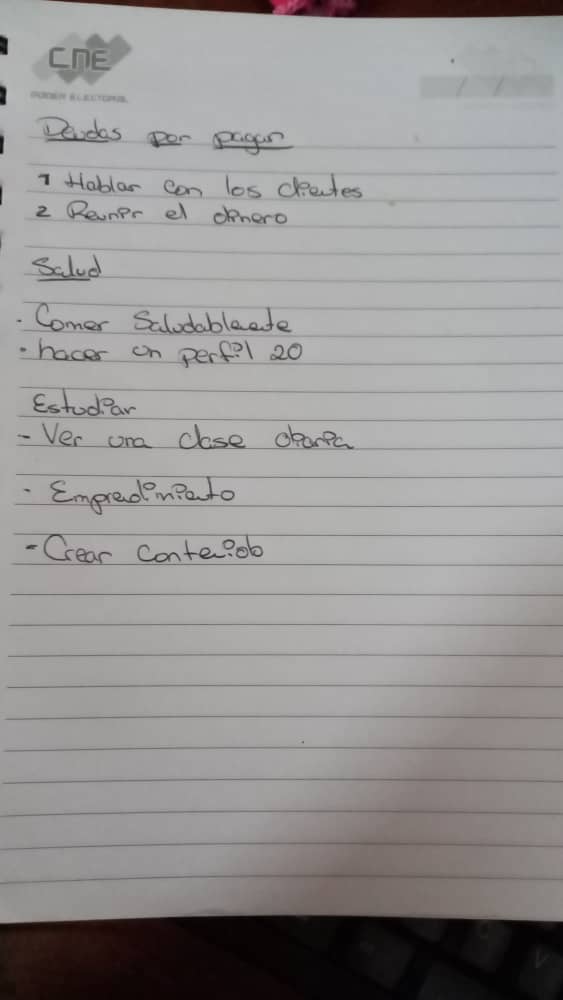 CNE
PODER ELECTORAL
Deudas por pagar
1 Hablar con los clientes
2 Reunir el dinero
Salud
. Comer Saludableente
. hacer un perfil 20
Estudiar
- Ver una clase diaria
. Empredimiento
- Crear Conteido